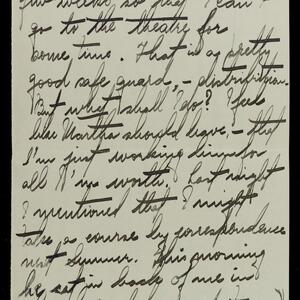 few weeks so that I can't
go to the theatre for
some time. That is a pretty
good safe guard, -
But what shall I do? I feel
like Martha should leave, - that
I'm just working him for
all I'm worth. Last night
I mentioned that I might
take a course by correspondence
next summer. This morning
he sat in back of me in